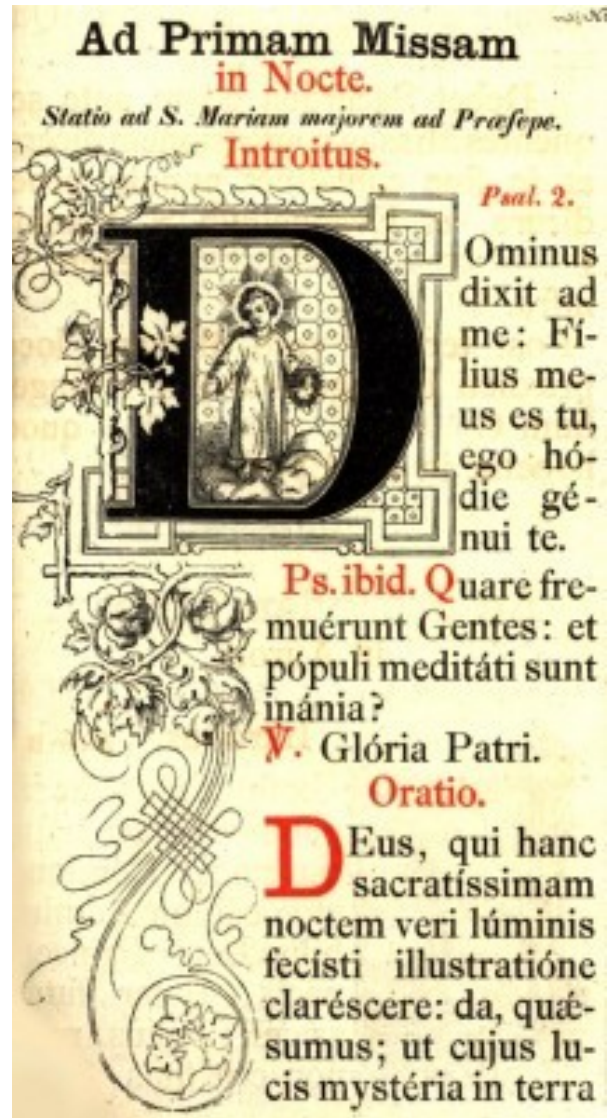 Ad Primam Missam
in Nocte.
Statio ad S. Mariam majorem ad Præsepe.
Introitus.
Psal. 2.
DOminus
dixit ad
me: Fí-
lius me-
us es tu,
ego hó-
die gé-
nui te.
Ps. ibid. Quare fre-
muérunt Gentes: et
pópuli meditáti sunt
inánia?
℣. Glória Patri.
Oratio.
DEus, qui hanc
sacratíssimam
noctem veri lúminis
fecísti illustratióne
claréscere: da, quǽ-
sumus; ut cujus lu-
cis mystéria in terra